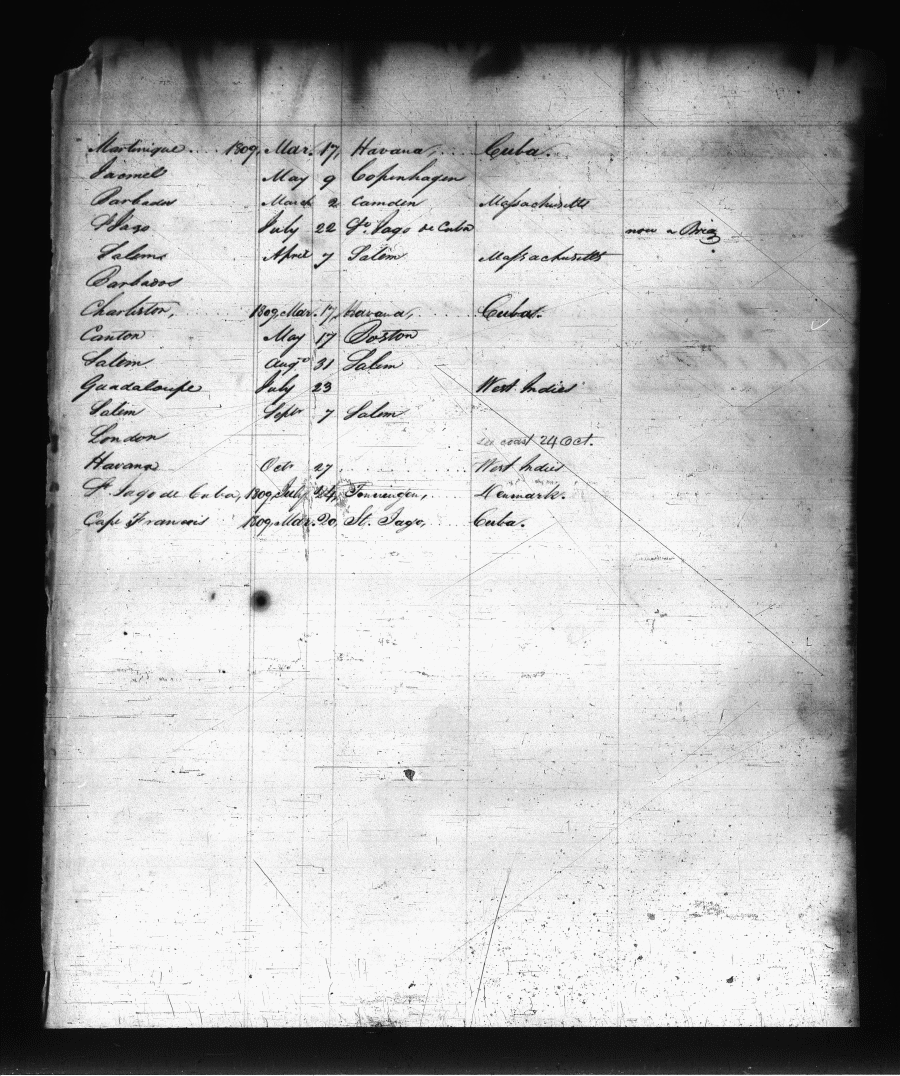 Martinique .... 1809, Mar. 17, Havana, .... Cuba.
Jacmel May 9 Copenhagen
Barbados March 2 Camden Massachusetts
St Jago July 22 St. Jago de Cuba now a Brig
Salem April 7 Salem Massachusetts
Barbados
Charleston, 1809, Mar. 17, Havana, .... Cuba.
Canton May 17 Boston
Salem Augt 31 Salem
Guadaloupe July 23 West Indies
Salem Sept 7 Salem
London coast 24 Oct.
Havana Oct 27 .... West Indies
St. Jago de Cuba, 1809, July 24, Denmark.
Cape Francois 1809, Mar. 20, St. Jago, .... Cuba.